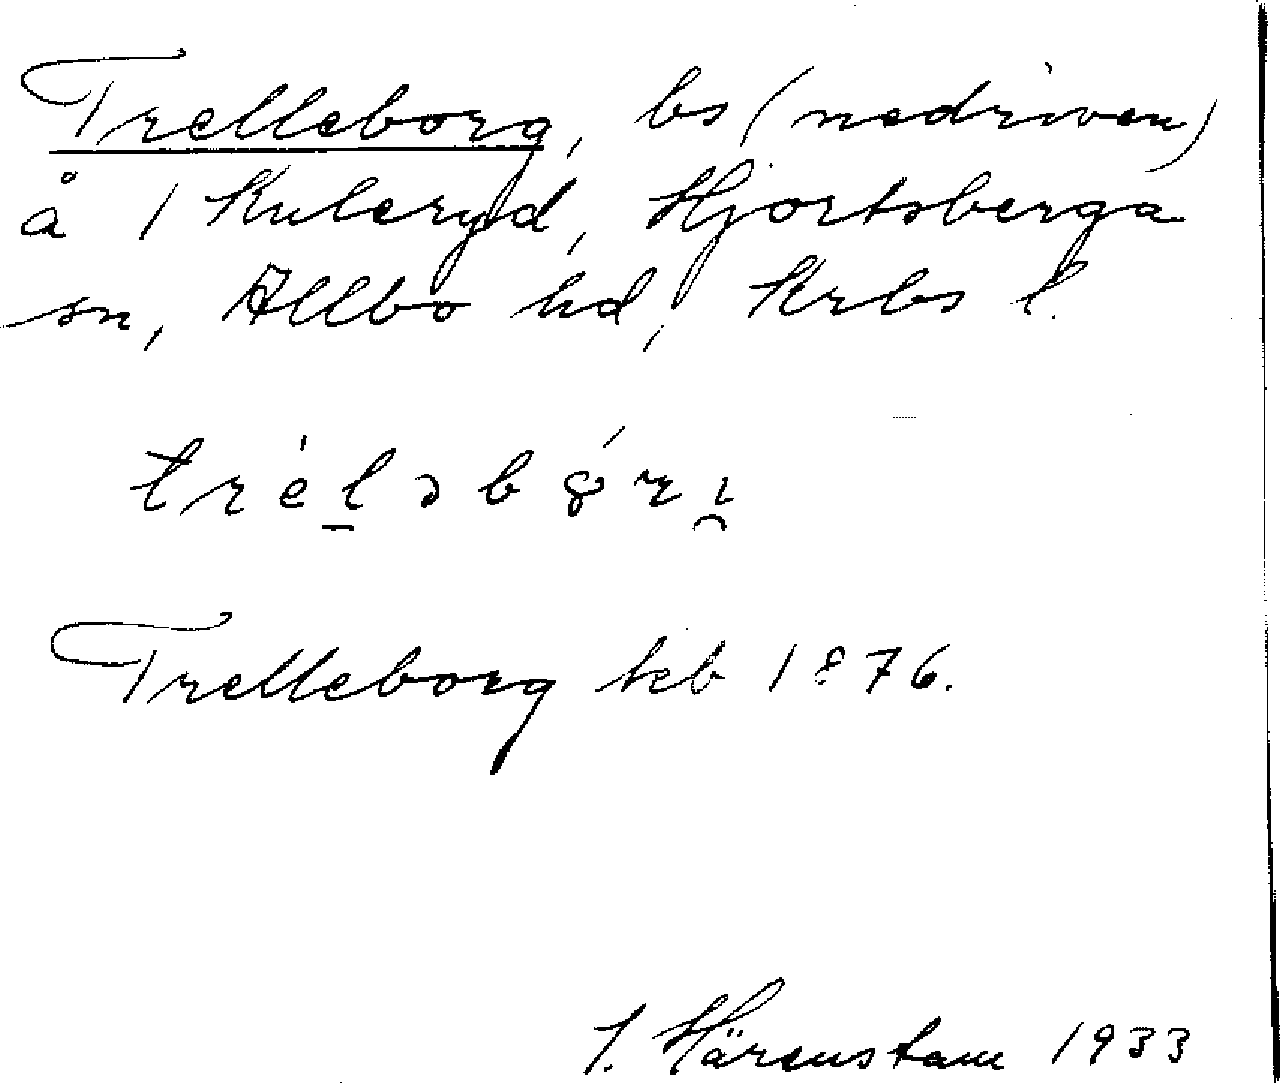 Trelleborg, bs (nedriven)
å 1 Kuleryd, Hjortsberga
sn, Allbo hd, Krbs l.
tre̍l̠əbȣ́rı̯
Trelleborg kb 1876.
J. Härenstam 1933